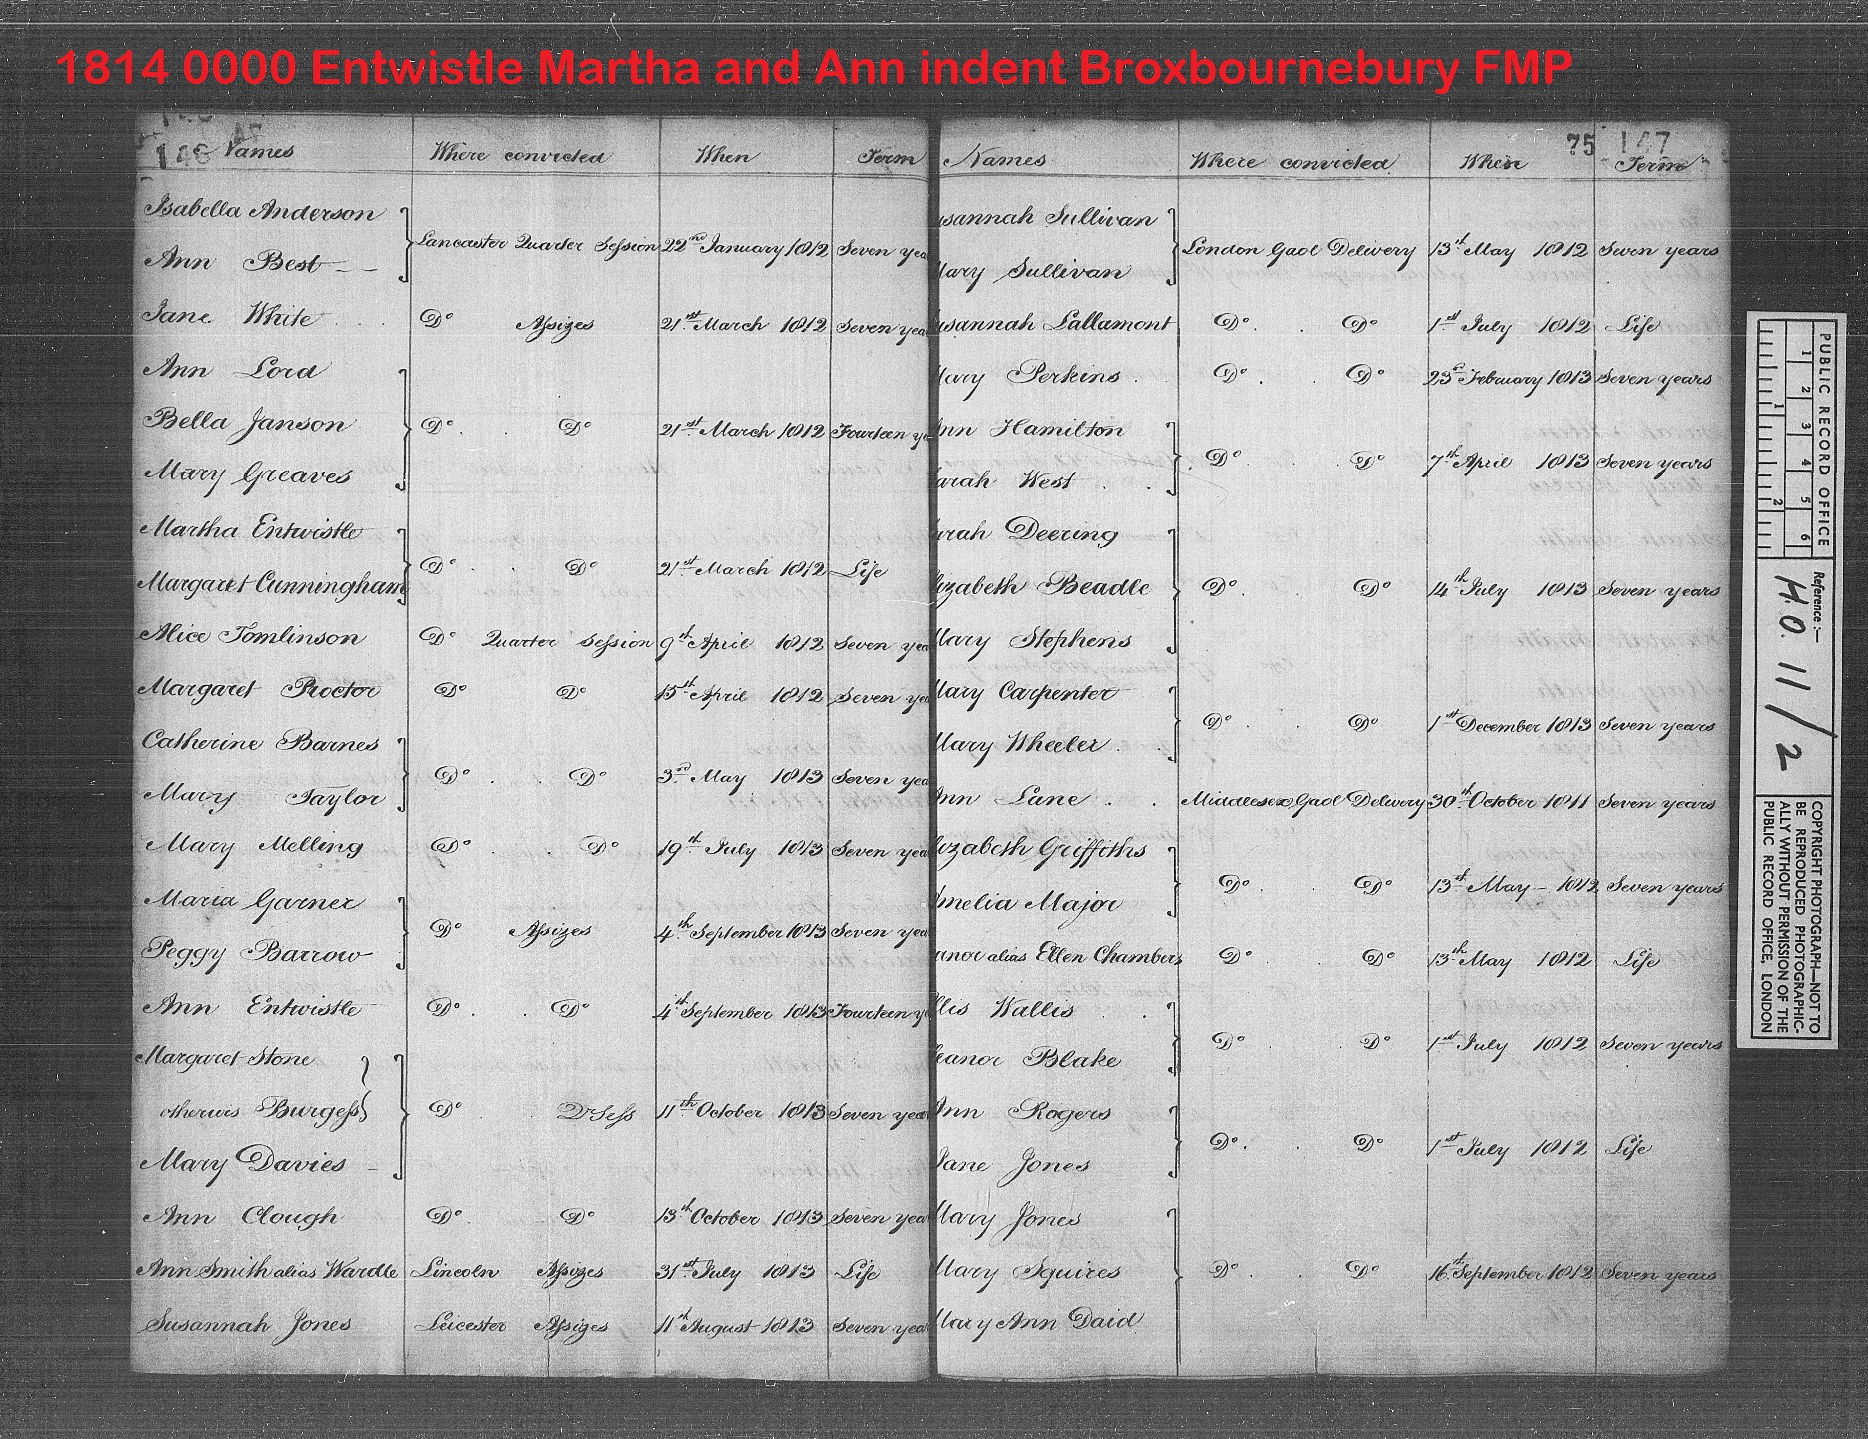 1814 0000 Entwistle Martha and Ann indent Broxbournebury FMP
146
Names Where convicted When Term
Isabella Anderson
Lancaster Quarter Session 22nd January 1812 Seven yea
Ann Best
Jane White Do Assizes 21st March 1812 Seven yea
Ann Lord
Bella Janson Do Do 21st March 1812 Fourteen ye
Mary Greaves
Martha Entwistle
Do Do 21st March 1812 Life
Margaret Cunningham
Alice Tomlinson Do Quarter Session 9th April 1812 Seven yea
Margaret Proctor Do Do 15th April 1812 Seven yea
Catherine Barnes
Do Do 3rd May 1813 Seven yea
Mary Taylor
Mary Melling Do Do 19th July 1813 Seven yea
Maria Garner
Do Assizes 4th September 1813 Seven yea
Peggy Barrow
Ann Entwistle Do Do 4th September 1813 Fourteen y
Margaret Stone
otherwis Burgess Do Qr Sess 11th October 1813 Seven yea
Mary Davies
Ann Clough Do Do 13th October 1813 Seven yea
Ann Smith alias Wardle Lincoln Assizes 31st July 1813 Life
Susannah Jones Leicester Assizes 11th August 1813 Seven yea
75 147
Names Where convicted When Term
usannah Sullivan
London Gaol Delivery 13th May 1812 Seven years
Mary Sullivan
usannah Lallamont Do Do 1st July 1812 Life
Mary Perkins Do Do 23d February 1813 Seven years
Ann Hamilton
Do Do 7th April 1813 Seven years
Sarah West
arah Deering
lizabeth Beadle Do Do 14th July 1813 Seven years
Mary Stephens
Mary Carpenter
Do Do 1st December 1813 Seven years
Mary Wheeler
Ann Lane Middlesex Gaol Delivery 30th October 1811 Seven years
lizabeth Griffiths
Do Do 13th May 1812 Seven years
Amelia Major
anor alias Ellen Chambers Do Do 13th May 1812 Life
llis Wallis
Do Do 1st July 1812 Seven years
leanor Blake
Ann Rogers
Do Do 1st July 1812 Life
Jane Jones
Mary Jones
Mary Squires Do Do 16th September 1812 Seven years
Mary Ann Daid
PUBLIC RECORD OFFICE
1 2 3 4 5 6
1 2
Reference:-
H.O. 11/2
COPYRIGHT PHOTOGRAPH—NOT TO
BE REPRODUCED PHOTOGRAPHIC-
ALLY WITHOUT PERMISSION OF THE
PUBLIC RECORD OFFICE, LONDON